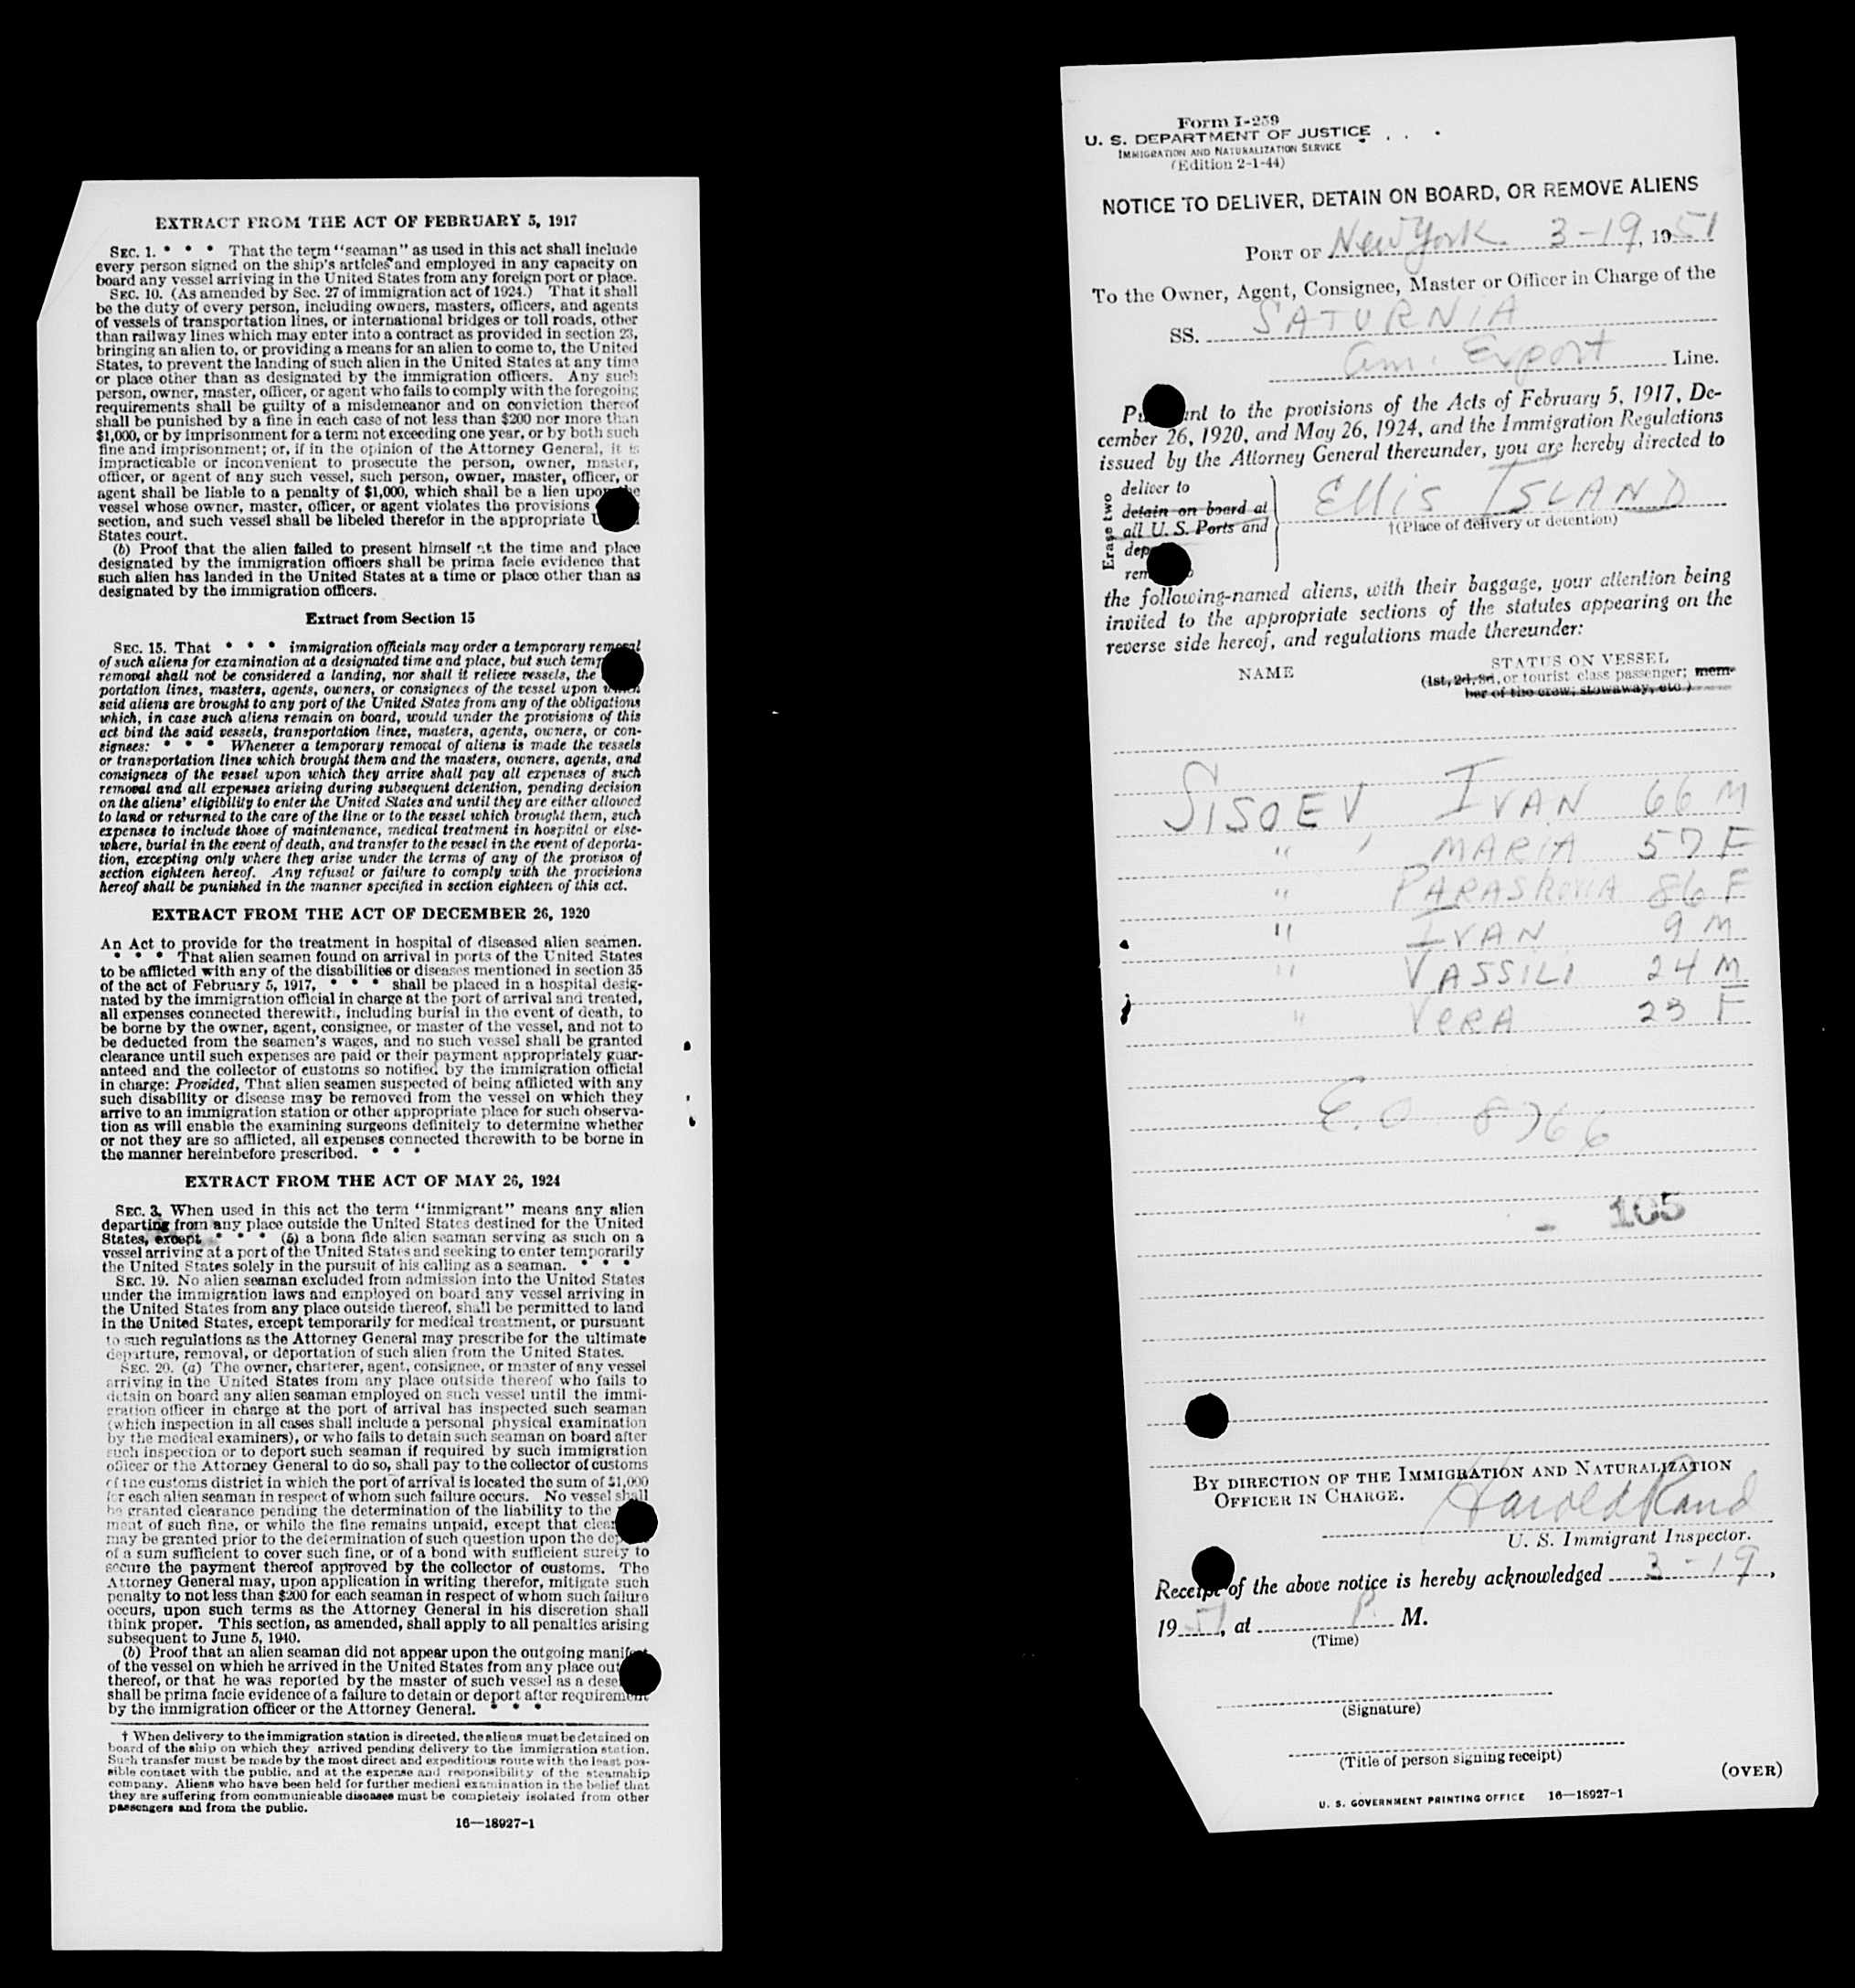 EXTRACT FROM THE ACT OF FEBRUARY 5, 1917
SEC. 1. * * * That the term "seaman" as used in this act shall include
every person signed on the ship's articles and employed in any capacity on
board any vessel arriving in the United States from any foreign port or place.
SEC. 10. (As amended by Sec. 27 of immigration act of 1924.) That it shall
be the duty of every person, including owners, masters, officers, and agents
of vessels of transportation lines, or international bridges or toll roads, other
than railway lines which may enter into a contract as provided in section 23,
bringing an alien to, or providing a means for an alien to come to, the United
States, to prevent the landing of such alien in the United States at any time
or place other than as designated by the immigration officers. Any such
person, owner, master, officer, or agent who fails to comply with the foregoing
requirements shall be guilty of a misdemeanor and on conviction thereof
shall be punished by a fine in each case of not less than $200 nor more than
$1,000, or by imprisonment for a term not exceeding one year, or by both such
fine and imprisonment; or, if in the opinion of the Attorney General, it is
impracticable or inconvenient to prosecute the person, owner, master,
officer, or agent of any such vessel, such person, owner, master, officer, or
agent shall be liable to a penalty of $1,000, which shall be a lien upon the
vessel whose owner, master, officer, or agent violates the provisions
section, and such vessel shall be libeled therefor in the appropriate
States court.
(b) Proof that the alien failed to present himself at the time and place
designated by the immigration officers shall be prima facie evidence that
such alien has landed in the United States at a time or place other than as
designated by the immigration officers.
Extract from Section 15
SEC. 15. That * * * immigration officials may order a temporary removal
of such aliens for examination at a designated time and place, but such temp
removal shall not be considered a landing, nor shall it relieve vessels, the
portation lines, masters, agents, owners, or consignees of the vessel upon which
said aliens are brought to any port of the United States from any of the obligations
which, in case such aliens remain on board, would under the provisions of this
act bind the said vessels, transportation lines, masters, agents, owners, or con-
signees: * * * Whenever a temporary removal of aliens is made the vessels
or transportation lines which brought them and the masters, owners, agents, and
consignees of the vessel upon which they arrive shall pay all expenses of such
removal and all expenses arising during subsequent detention, pending decision
on the aliens' eligibility to enter the United States and until they are either allowed
to land or returned to the care of the line or to the vessel which brought them, such
expenses to include those of maintenance, medical treatment in hospital or else-
where, burial in the event of death, and transfer to the vessel in the event of deporta-
tion, excepting only where they arise under the terms of any of the provisos of
section eighteen hereof. Any refusal or failure to comply with the provisions
hereof shall be punished in the manner specified in section eighteen of this act.
EXTRACT FROM THE ACT OF DECEMBER 26, 1920
An Act to provide for the treatment in hospital of diseased alien seamen.
* * * That alien seamen found on arrival in ports of the United States
to be afflicted with any of the disabilities or diseases mentioned in section 35
of the act of February 5, 1917, * * * shall be placed in a hospital desig-
nated by the immigration official in charge at the port of arrival and treated,
all expenses connected therewith, including burial in the event of death, to
be borne by the owner, agent, consignee, or master of the vessel, and not to
be deducted from the seamen's wages, and no such vessel shall be granted
clearance until such expenses are paid or their payment appropriately guar-
anteed and the collector of customs so notified by the immigration official
in charge: Provided, That alien seamen suspected of being afflicted with any
such disability or disease may be removed from the vessel on which they
arrive to an immigration station or other appropriate place for such observa-
tion as will enable the examining surgeons definitely to determine whether
or not they are so afflicted, all expenses connected therewith to be borne in
the manner hereinbefore prescribed. * * *
EXTRACT FROM THE ACT OF MAY 26, 1924
SEC. 3. When used in this act the term "immigrant" means any alien
departing from any place outside the United States destined for the United
States, except * * * (5) a bona fide alien seaman serving as such on a
vessel arriving at a port of the United States and seeking to enter temporarily
the United States solely in the pursuit of his calling as a seaman. * * *
SEC. 19. No alien seaman excluded from admission into the United States
under the immigration laws and employed on board any vessel arriving in
the United States from any place outside thereof, shall be permitted to land
in the United States, except temporarily for medical treatment, or pursuant
to such regulations as the Attorney General may prescribe for the ultimate
departure, removal, or deportation of such alien from the United States.
SEC. 20. (a) The owner, charterer, agent, consignee, or master of any vessel
arriving in the United States from any place outside thereof who fails to
detain on board any alien seaman employed on such vessel until the immi-
gration officer in charge at the port of arrival has inspected such seaman
(which inspection in all cases shall include a personal physical examination
by the medical examiners), or who fails to detain such seaman on board after
such inspection or to deport such seaman if required by such immigration
officer or the Attorney General to do so, shall pay to the collector of customs
of the customs district in which the port of arrival is located the sum of $1,000
for each alien seaman in respect of whom such failure occurs. No vessel shall
be granted clearance pending the determination of the liability to the
ment of such fine, or while the fine remains unpaid, except that clear
may be granted prior to the determination of such question upon the dep
of a sum sufficient to cover such fine, or of a bond with sufficient surety to
secure the payment thereof approved by the collector of customs. The
Attorney General may, upon application in writing therefor, mitigate such
penalty to not less than $200 for each seaman in respect of whom such failure
occurs, upon such terms as the Attorney General in his discretion shall
think proper. This section, as amended, shall apply to all penalties arising
subsequent to June 5, 1940.
(b) Proof that an alien seaman did not appear upon the outgoing manifest
of the vessel on which he arrived in the United States from any place out
thereof, or that he was reported by the master of such vessel as a dese
shall be prima facie evidence of a failure to detain or deport after requirement
by the immigration officer or the Attorney General. * * *
† When delivery to the immigration station is directed, the aliens must be detained on
board of the ship on which they arrived pending delivery to the immigration station.
Such transfer must be made by the most direct and expeditious route with the least pos-
sible contact with the public, and at the expense and responsibility of the steamship
company. Aliens who have been held for further medical examination in the belief that
they are suffering from communicable diseases must be completely isolated from other
passengers and from the public.
16—18927-1
Form I-259
U. S. DEPARTMENT OF JUSTICE
IMMIGRATION AND NATURALIZATION SERVICE
(Edition 2-1-44)
NOTICE TO DELIVER, DETAIN ON BOARD, OR REMOVE ALIENS
PORT OF New York 3-19, 1951
To the Owner, Agent, Consignee, Master or Officer in Charge of the
SS. SATURNIA
Am. Export Line.
Pursuant to the provisions of the Acts of February 5, 1917, De-
cember 26, 1920, and May 26, 1924, and the Immigration Regulations
issued by the Attorney General thereunder, you are hereby directed to
Erase two
deliver to
detain on board at
all U. S. Ports and
dep
rem
ELLIS ISLAND
†(Place of delivery or detention)
the following-named aliens, with their baggage, your attention being
invited to the appropriate sections of the statutes appearing on the
reverse side hereof, and regulations made thereunder:
NAME STATUS ON VESSEL
(1st, 2d, 3d, or tourist class passenger; mem-
ber of the crew; stowaway, etc.)
SISOEV, IVAN 66 M
" MARIA 57 F
" PARASKOVIA 86 F
" IVAN 9 M
" VASSILI 24 M
" VERA 23 F
E.O 8766
- 105
BY DIRECTION OF THE IMMIGRATION AND NATURALIZATION
OFFICER IN CHARGE.
Harold Rand
U. S. Immigrant Inspector.
Receipt of the above notice is hereby acknowledged 3-19,
1951, at P. M.
(Time)
(Signature)
(Title of person signing receipt)
(OVER)
U. S. GOVERNMENT PRINTING OFFICE 16—18927-1